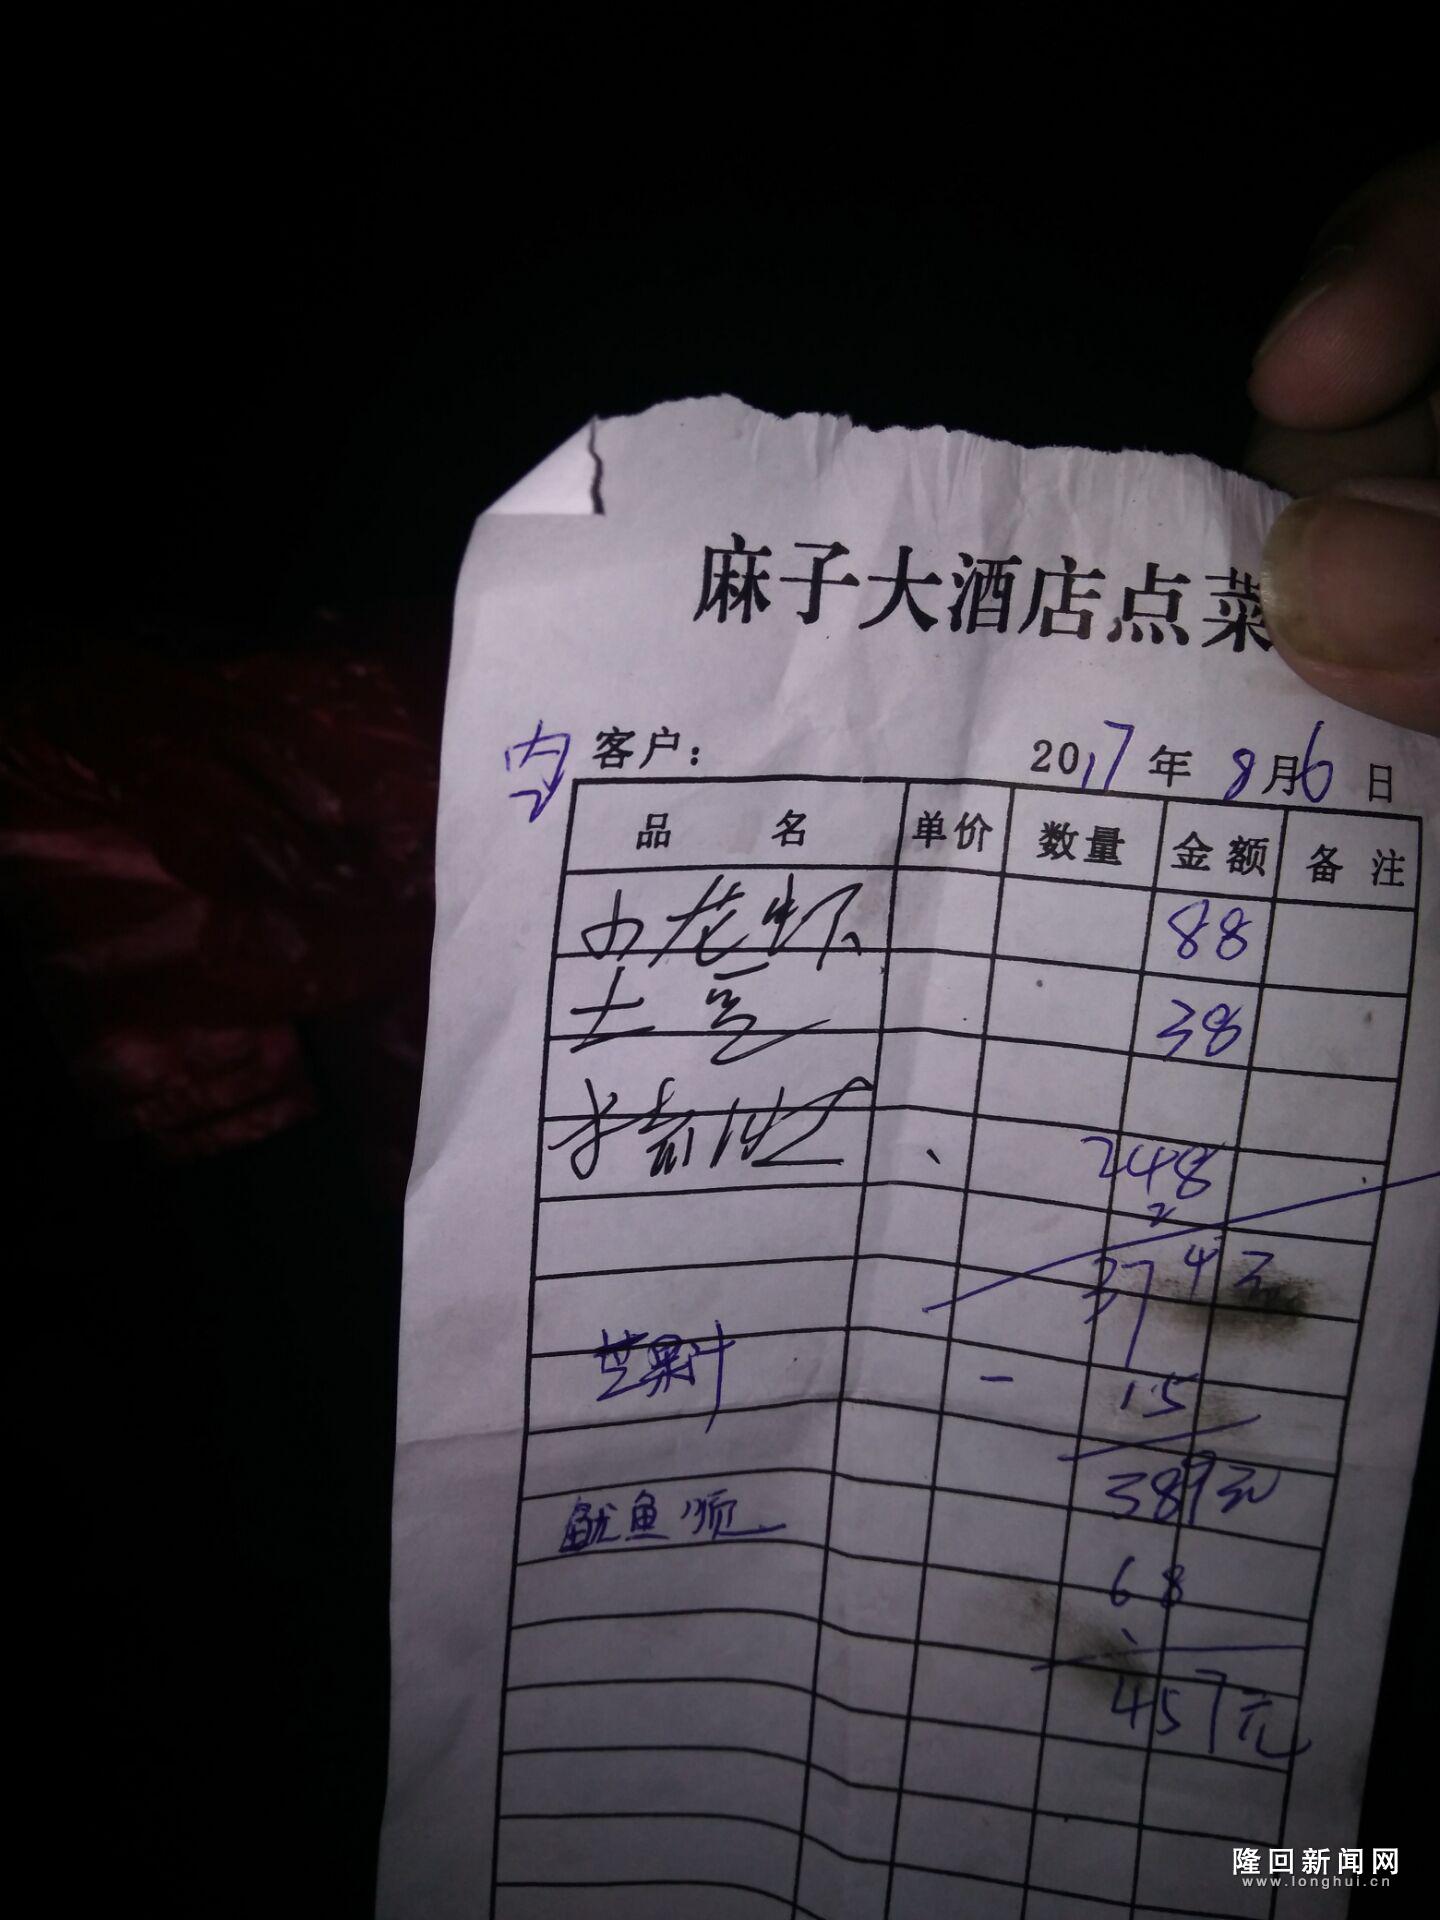 麻子大酒店点菜
内2
客户： 2017年8月6日
品 名 单价 数量 金额 备注
小龙虾 88
土豆 38
248
2
374元
芒果汁 一 15
389元
鱿鱼须
68
457元
隆回新闻网
www.longhui.cn